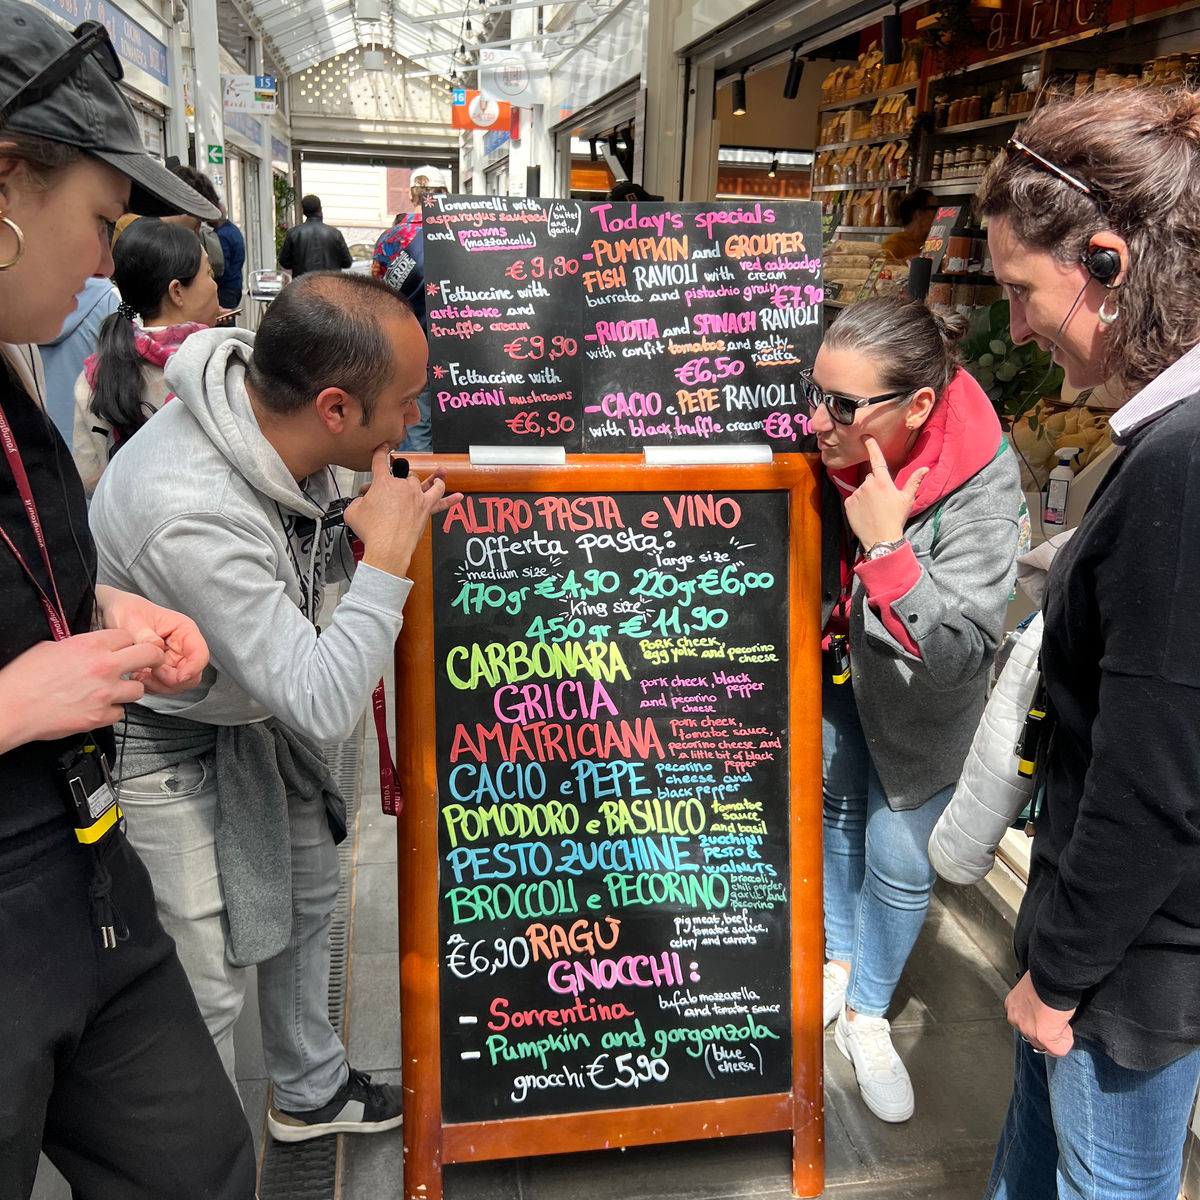 CUCINA
15
30
16
15
altro
*Tonnarelli with
asparagus sauteed
(in butter and garlic)
and prawns
(mazzancolle)
€9,90
*Fettuccine with
artichoke and
truffle cream
€9,90
*Fettuccine with
PORCINI mushrooms
€6,90
Today's specials
-PUMPKIN and GROUPER
FISH RAVIOLI with red cabbadge
cream,
burrata and pistachio grain
€7,90
-RICOTTA and SPINACH RAVIOLI
with confit tomatoe and salty
ricotta
€6,50
-CACIO e PEPE RAVIOLI
with black truffle cream €8,90
ALTRO PASTA e VINO
Offerta pasta:
medium size large size
170gr €4,90 220gr €6,00
king size
450 gr € 11,90
CARBONARA pork cheek,
egg yolk and pecorino
cheese
GRICIA pork cheek, black
pepper
and pecorino
cheese
AMATRICIANA pork cheek,
tomatoe sauce,
pecorino cheese and
a little bit of black
pepper
CACIO e PEPE pecorino
cheese and
black pepper
POMODORO e BASILICO tomatoe
sauce
and basil
PESTO ZUCCHINE zucchini
pesto &
walnuts
BROCCOLI e PECORINO broccoli,
chili pepper,
garlic and
pecorino
€6,90 RAGÙ pig meat, beef,
tomatoe sauce,
celery and carrots
GNOCCHI:
- Sorrentina bufala mozzarella
and tomatoe sauce
- Pumpkin and gorgonzola
gnocchi €5,90 (blue
cheese)